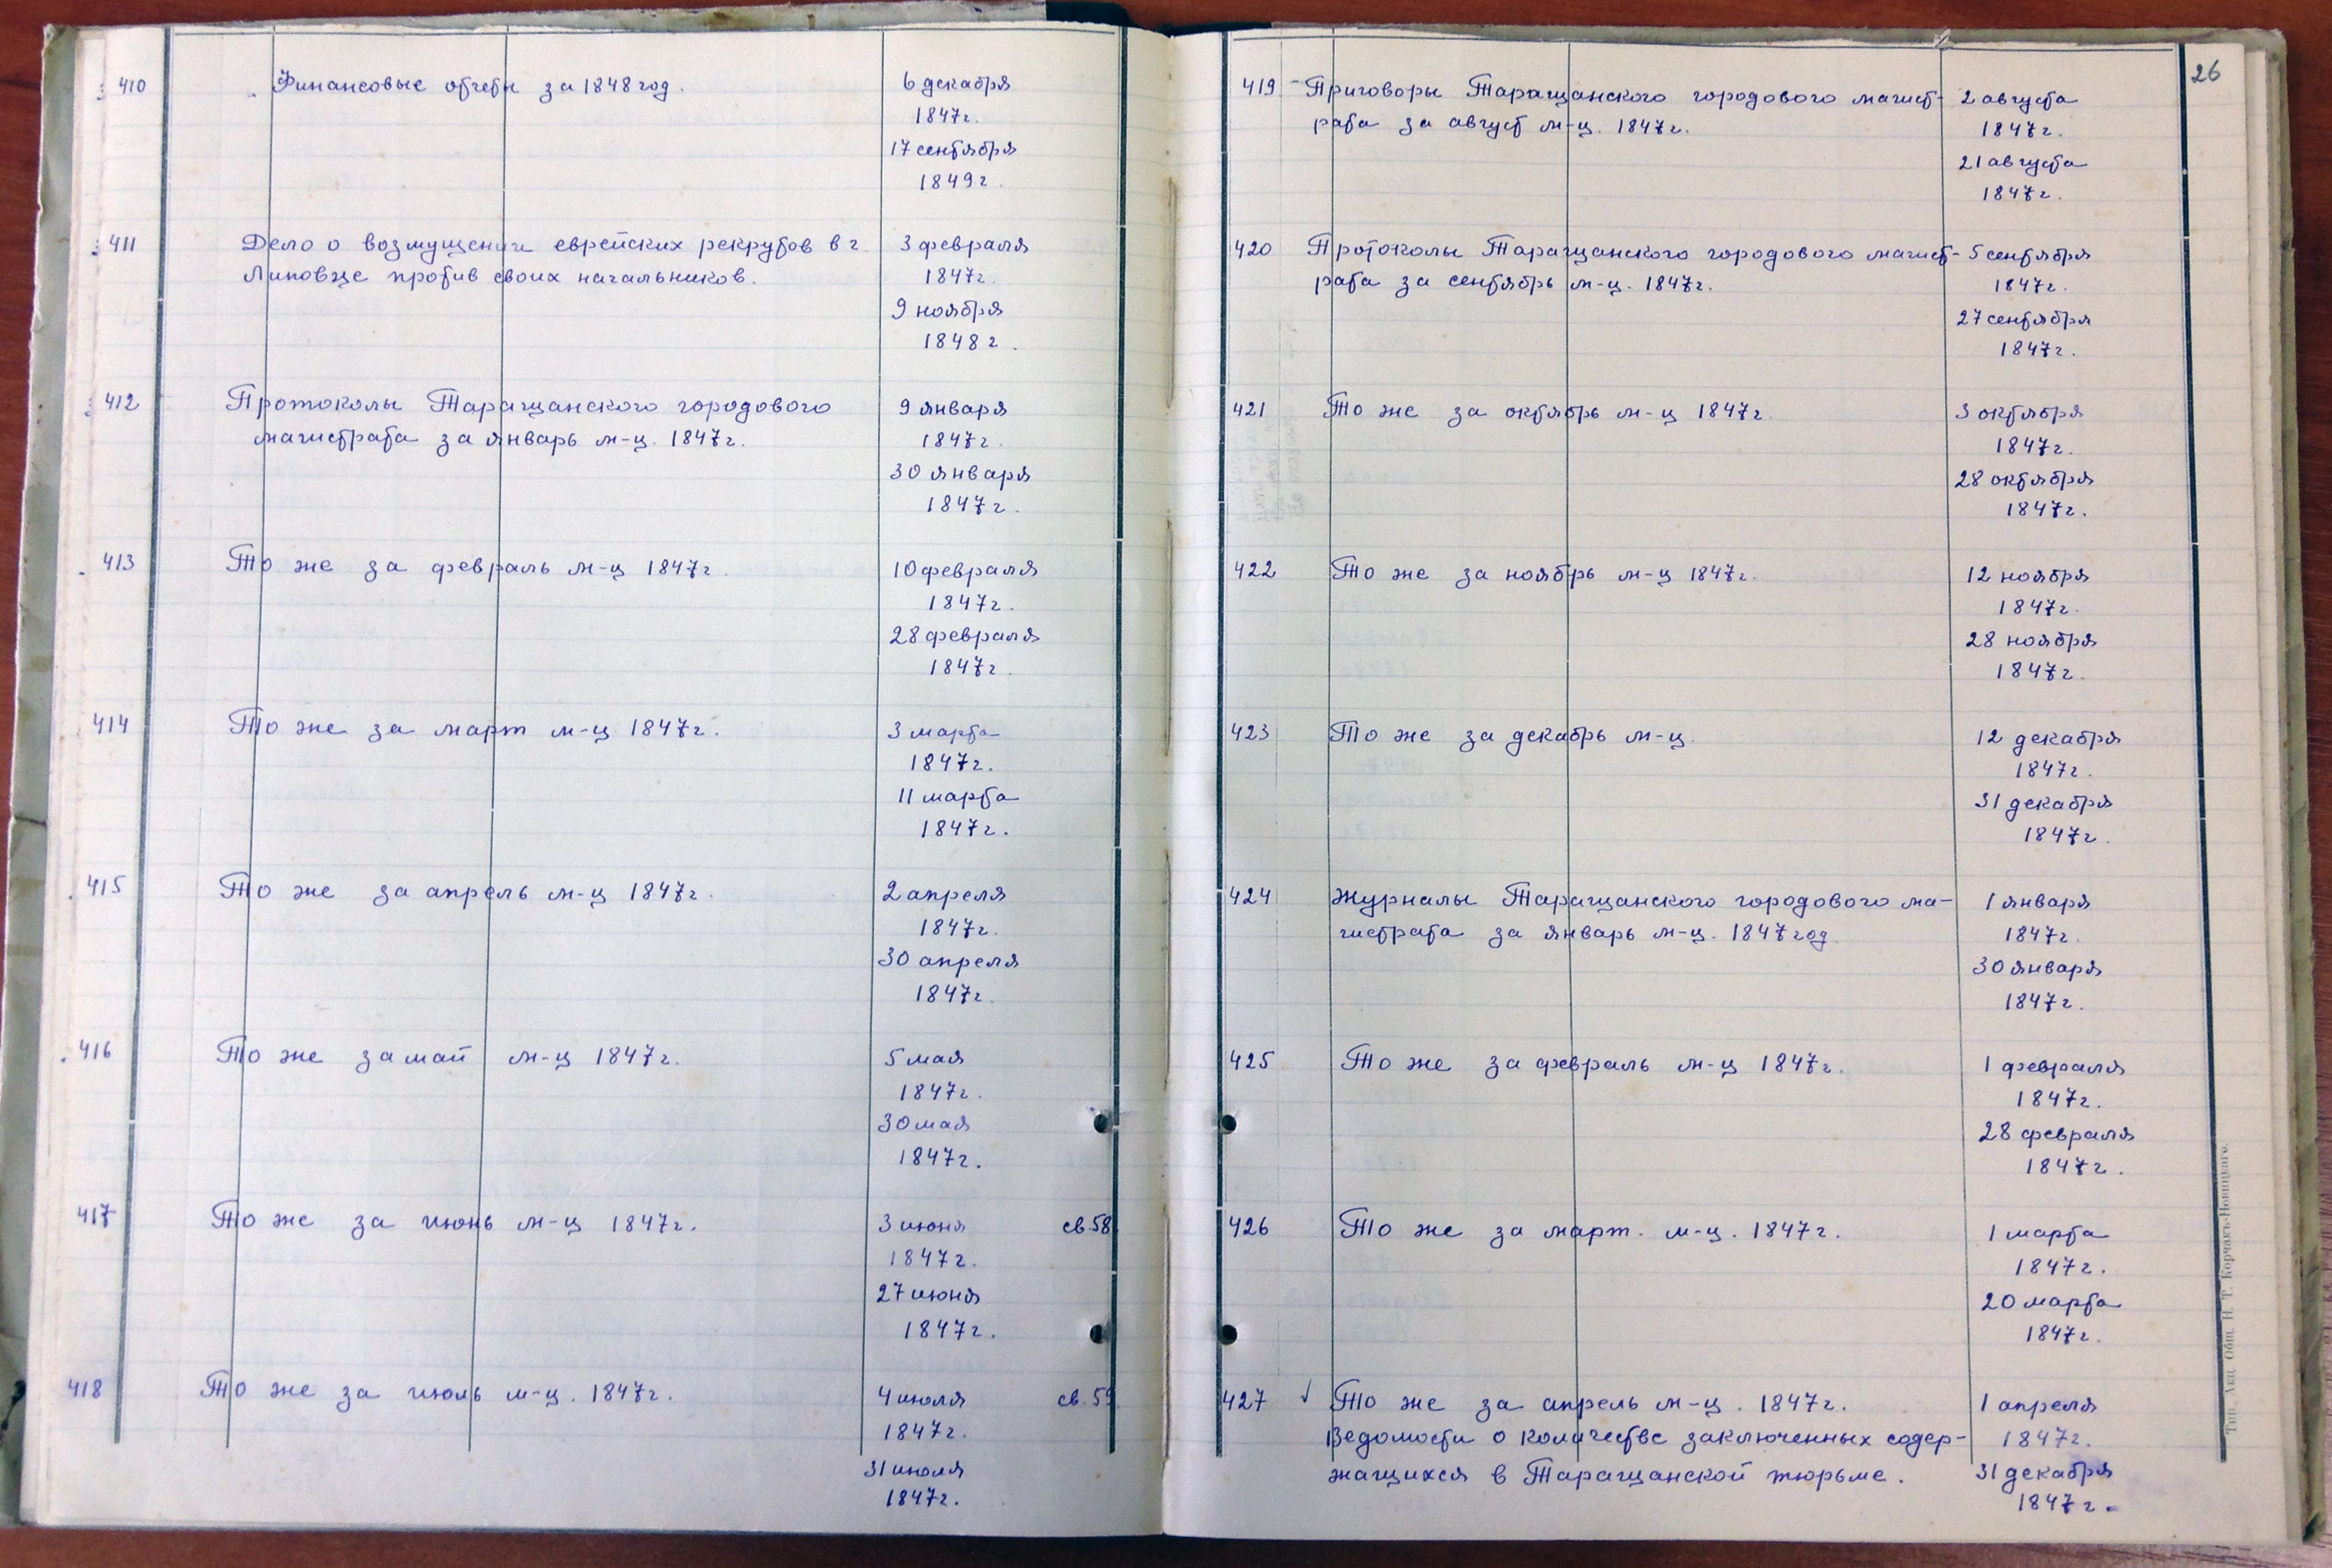 410 Финансовые отчеты за 1848 год. 6 декабря
1847г.
17 сентября
1849г.
411 Дело о возмущении еврейских рекрутов в г. 3 февраля
Липовце против своих начальников. 1847г.
9 ноября
1848г.
412 Протоколы Таращанского городового 9 января
магистрата за январь м-ц. 1847г. 1847г.
30 января
1847г.
413 То же за февраль м-ц 1847г. 10 февраля
1847г.
28 февраля
1847г.
414 То же за март м-ц 1847г. 3 марта
1847г.
11 марта
1847г.
415 То же за апрель м-ц 1847г. 2 апреля
1847г.
30 апреля
1847г.
416 То же за май м-ц 1847г. 5 мая
1847г.
30 мая
1847г.
417 То же за июнь м-ц 1847г. 3 июня св.58.
1847г.
27 июня
1847г.
418 То же за июль м-ц. 1847г. 4 июля св.59.
1847г.
31 июля
1847г.
26
419 Приговоры Таращанского городового магист- 2 августа
рата за август м-ц. 1847г. 1847г.
21 августа
1847г.
420 Протоколы Таращанского городового магист- 5 сентября
рата за сентябрь м-ц. 1847г. 1847г.
27 сентября
1847г.
421 То же за октябрь м-ц 1847г. 3 октября
1847г.
28 октября
1847г.
422 То же за ноябрь м-ц 1847г. 12 ноября
1847г.
28 ноября
1847г.
423 То же за декабрь м-ц. 12 декабря
1847г.
31 декабря
1847г.
424 Журналы Таращанского городового ма- 1 января
гистрата за январь м-ц. 1847 год. 1847г.
30 января
1847г.
425 То же за февраль м-ц 1847г. 1 февраля
1847г.
28 февраля
1847г.
426 То же за март. м-ц. 1847г. 1 марта
1847г.
20 марта
1847г.
427 √ То же за апрель м-ц. 1847г. 1 апреля
Ведомости о количестве заключенных содер- 1847г.
жащихся в Таращанской тюрьме. 31 декабря
1847г.
Тип. Акц. Общ. Н. Т. Корчакъ-Новицкаго.